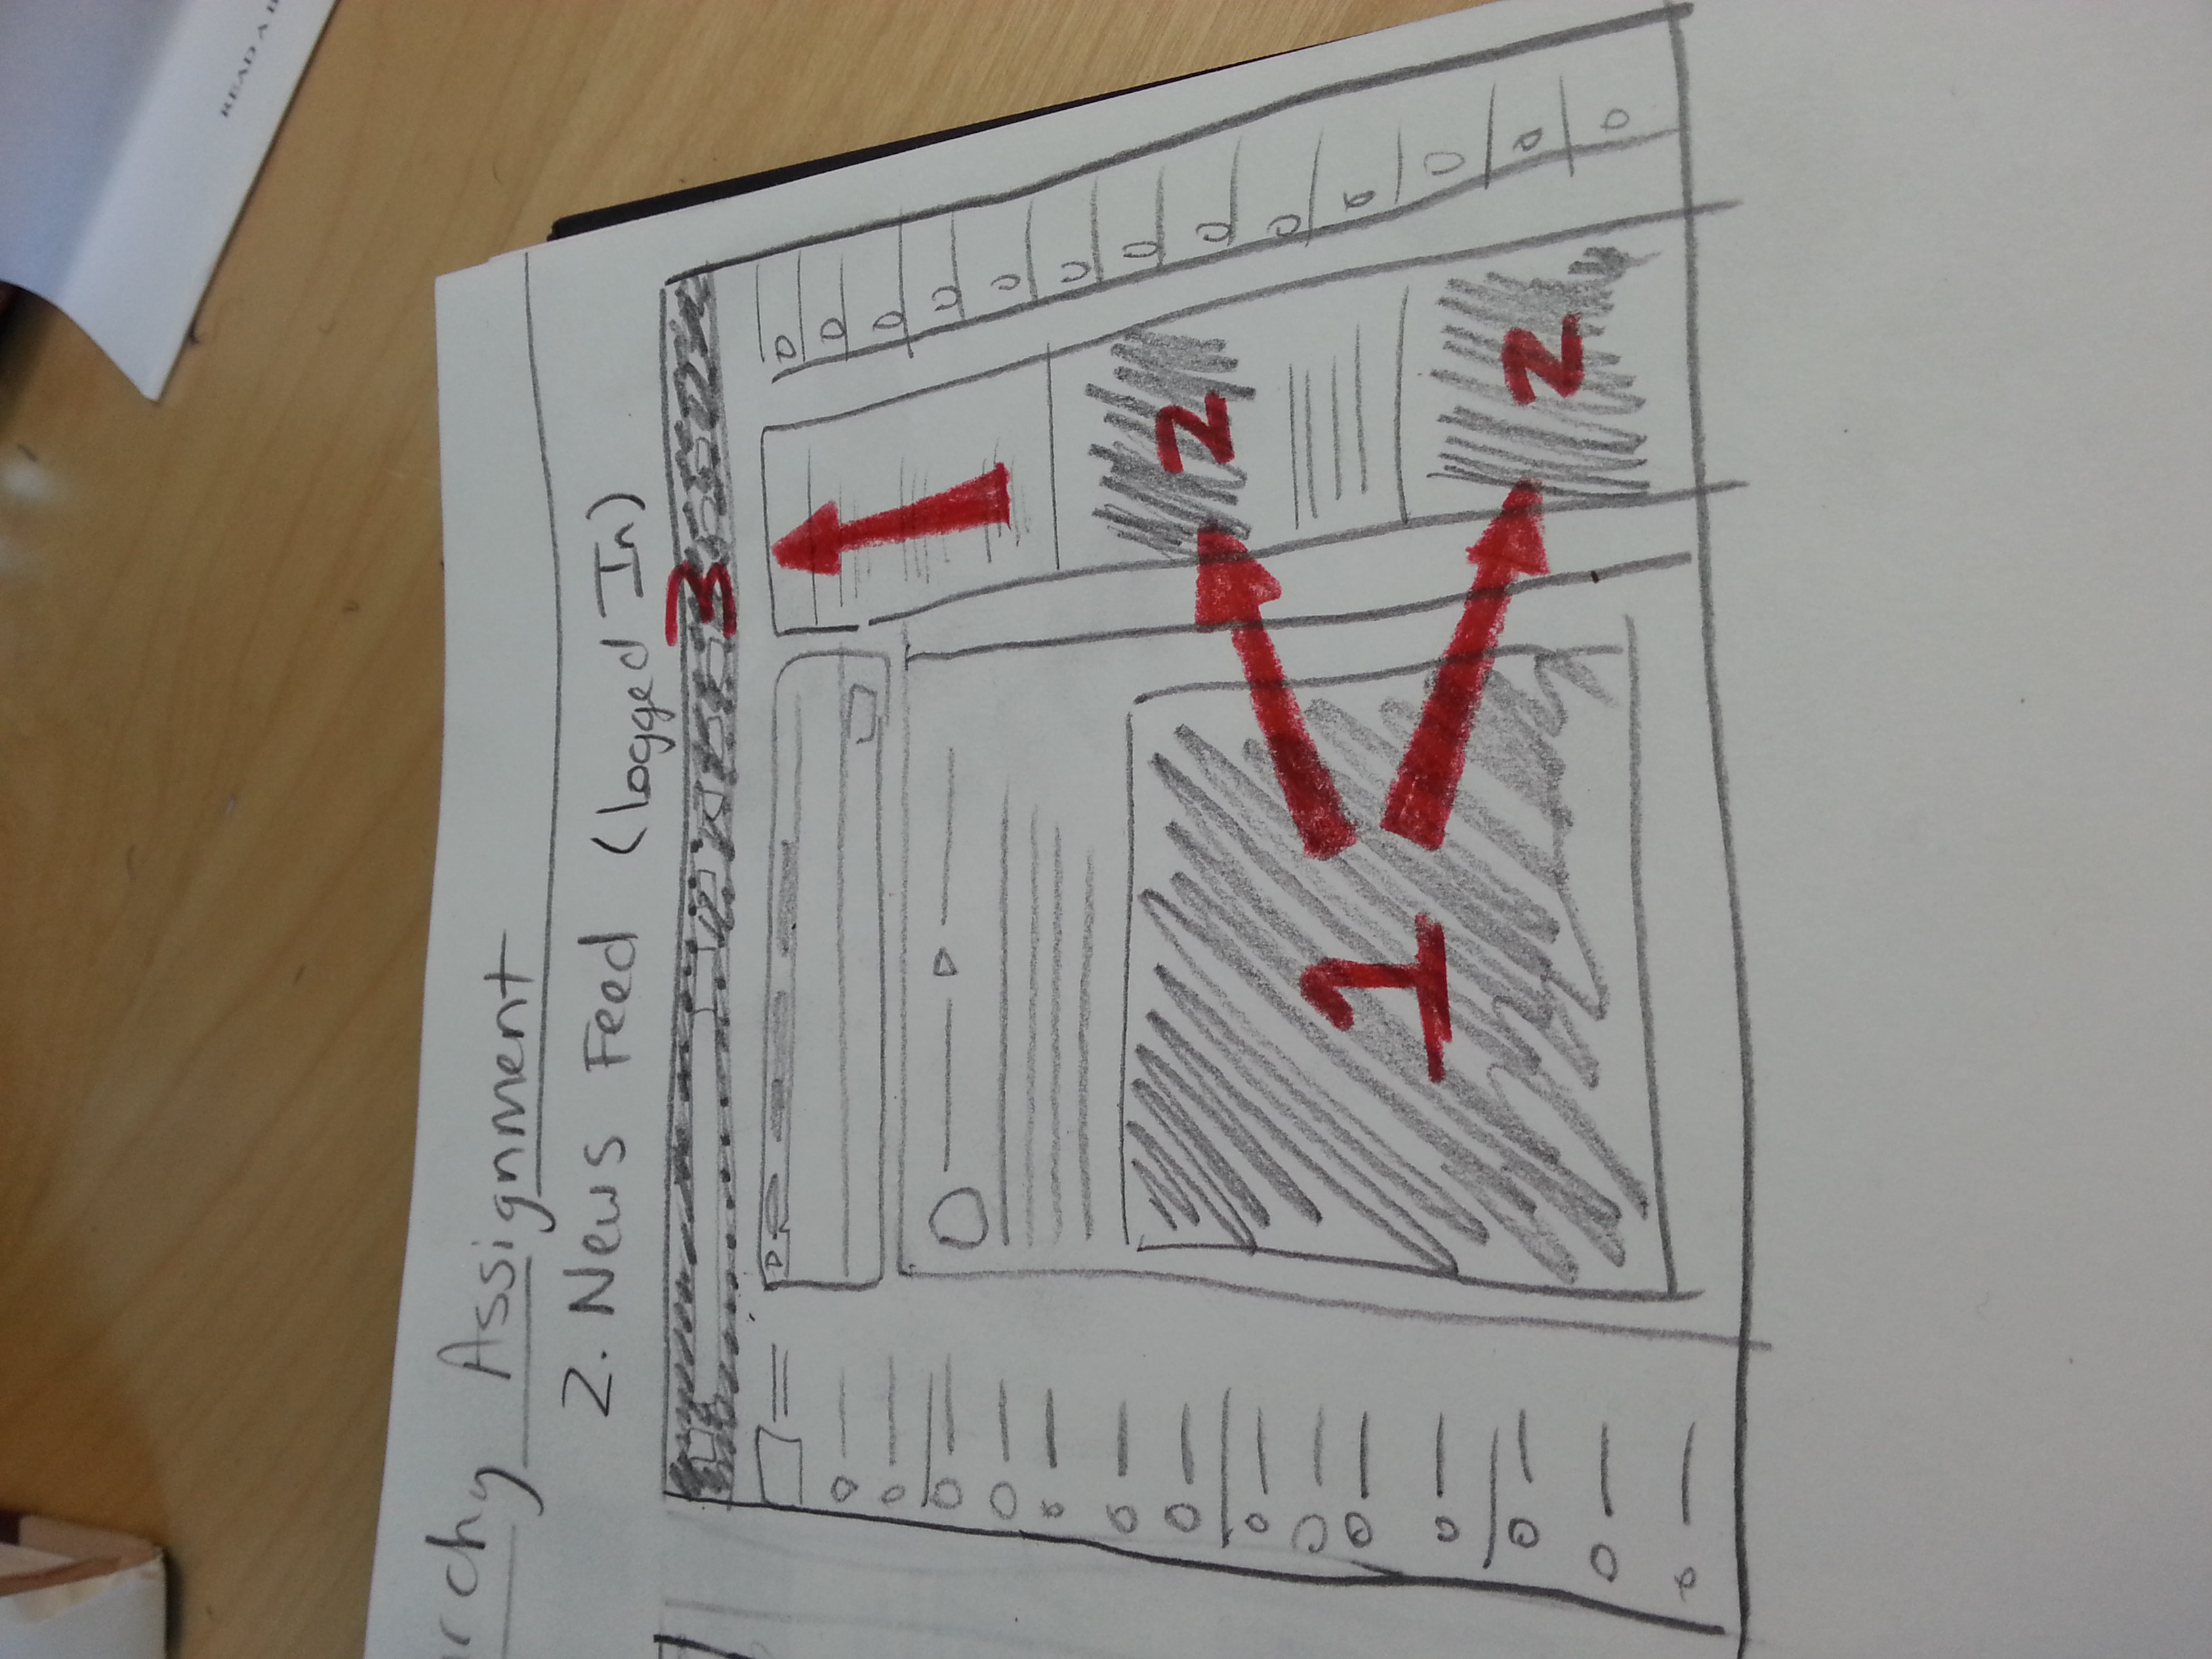 READ A B
archy Assignment
2. News Feed (logged In)
3
2
1
2